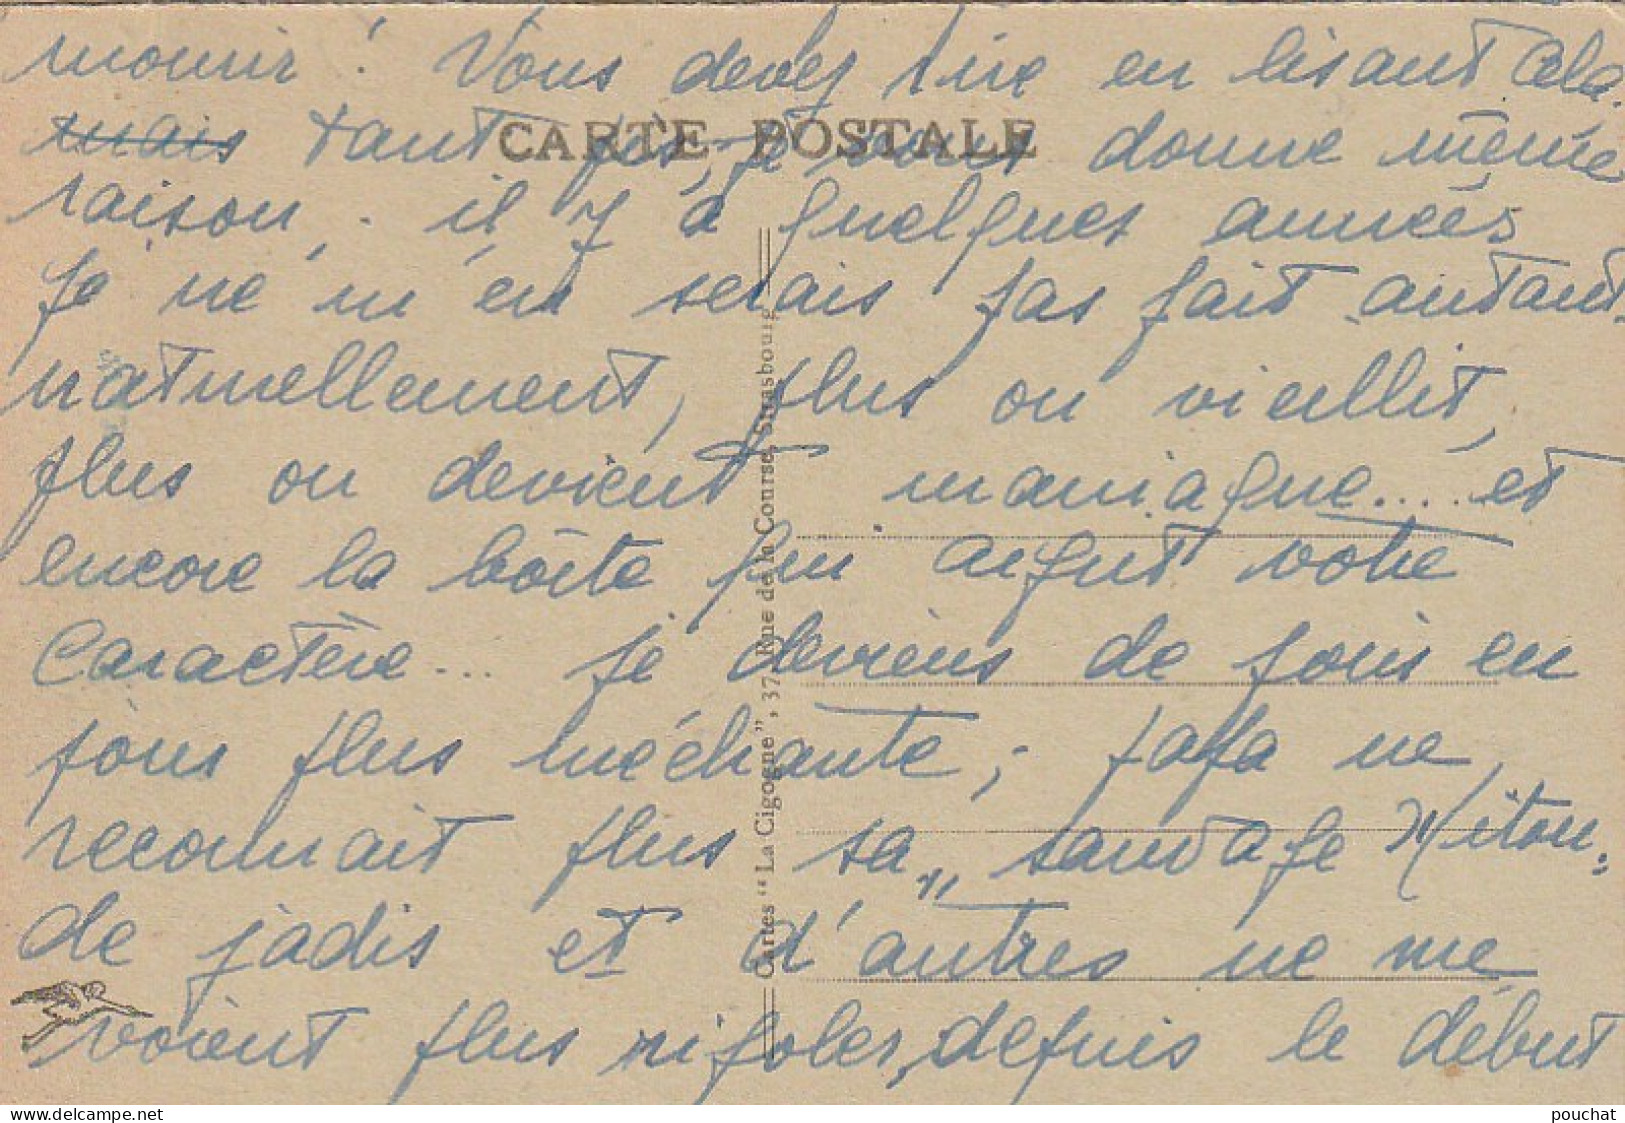 mourir ! Vous devez rire en lisant cela.
mais tant pis, je vous donne même
CARTE POSTALE
raison, - il y a quelques années
je ne m'en serais pas fait autant.
naturellement, plus on vieillit,
plus on devient maniaque.... et
encore la boîte qui aigrit votre
caractère... je deviens de jour en
jour plus méchante ; papa ne
reconnait plus sa "sauvage
de jadis et d'autres ne me
voient plus rigoler, depuis le début
Cartes "La Cigogne", 37, Rue de la Course, Strasbourg
pouchat